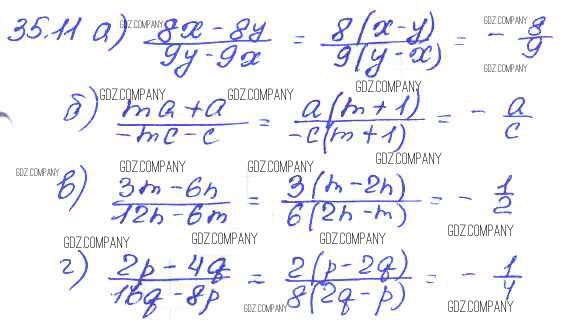 35.11 а) (8x - 8y)/(9y - 9x) = 8(x - y)/9(y - x) = - 8/9
б) (ma + a)/(-mc - c) = a(m + 1)/-c(m + 1) = - a/c
в) (3m - 6n)/(12n - 6m) = 3(m - 2n)/6(2n - m) = - 1/2
г) (2p - 4q)/(16q - 8p) = 2(p - 2q)/8(2q - p) = - 1/4
GDZ.COMPANY GDZ.COMPANY
GDZ.COMPANY
GDZ.COMPANY
GDZ.COMPANY GDZ.COMPANY
GDZ.COMPANY
GDZ.COMPANY GDZ.COMPANY GDZ.COMPANY
GDZ.COMPANY
GDZ.COMPANY GDZ.COMPANY GDZ.COMPANY
GDZ.COMPANY GDZ.COMPANY